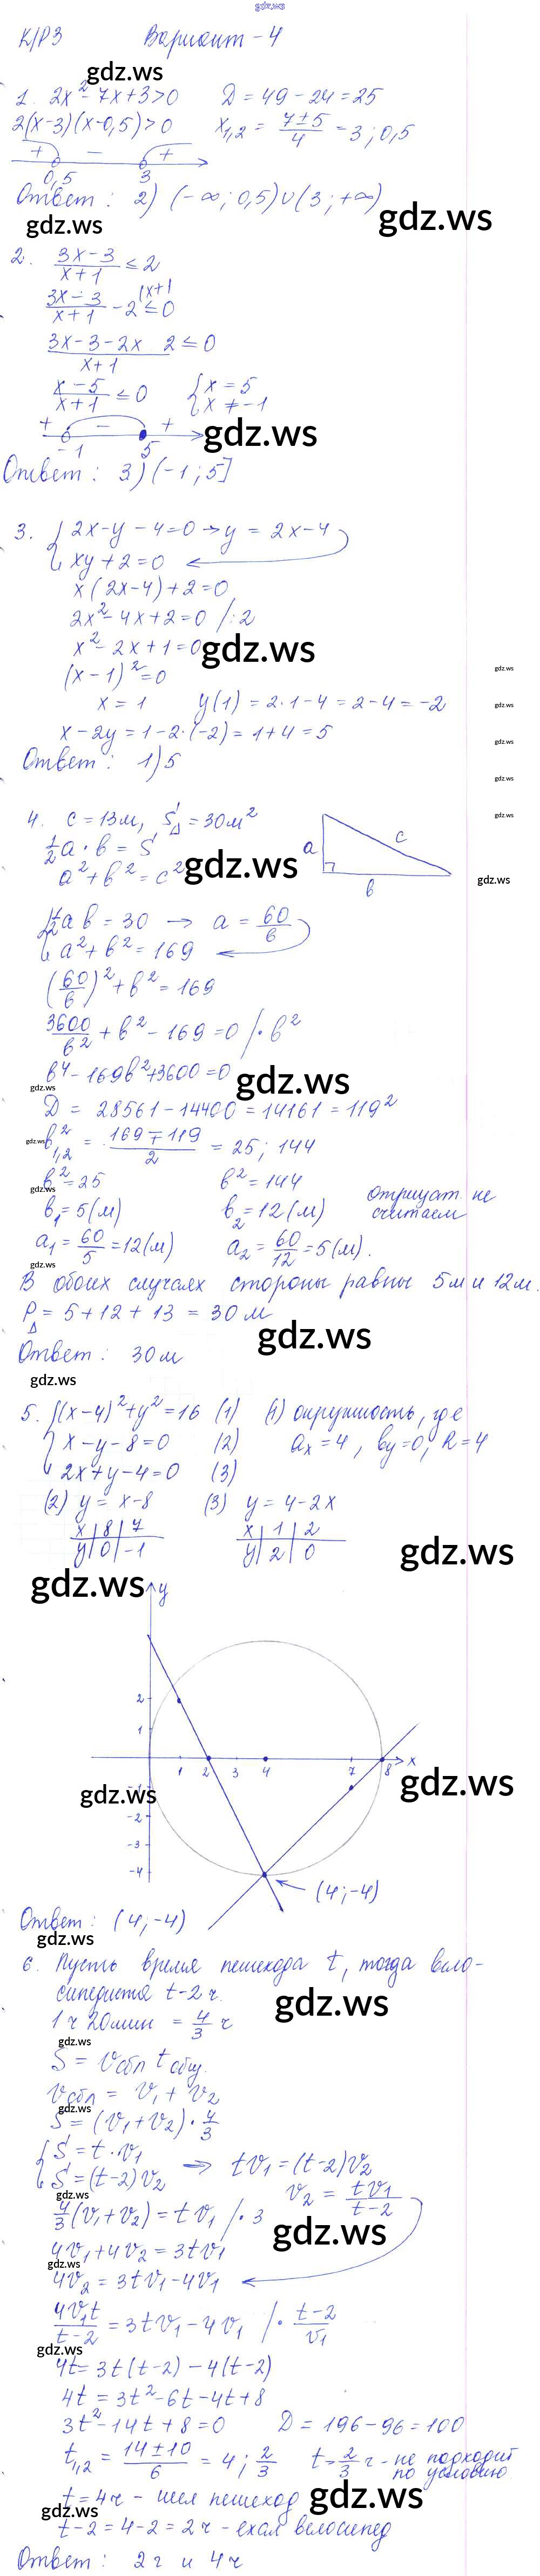 gdz.ws
К/Р3 Вариант-4
gdz.ws
1. 2x²-7x+3>0 D=49-24=25
2(x-3)(x-0,5)>0 x₁,₂ = (7±5)/4 = 3; 0,5
+ - +
0,5 3
Ответ: 2) (-∞; 0,5)∪(3; +∞)
gdz.ws gdz.ws
2. (3x-3)/(x+1) ≤ 2
(3x-3)/(x+1) - 2 (x+1) ≤ 0
(3x-3-2x 2)/(x+1) ≤ 0
(x-5)/(x+1) ≤ 0 { x = 5
x ≠ -1
+ - +
-1 5
gdz.ws
Ответ: 3) (-1; 5]
3. { 2x-y-4=0 → y = 2x-4
xy+2=0
x(2x-4)+2=0
2x²-4x+2=0 /:2
x²-2x+1=0
gdz.ws
(x-1)²=0
gdz.ws
x = 1 y(1) = 2·1-4 = 2-4 = -2
gdz.ws
x-2y = 1-2·(-2) = 1+4 = 5
gdz.ws
Ответ: 1) 5
gdz.ws
4. c = 13м, S△ = 30м²
gdz.ws
½a·b = S
a²+b²=c²
gdz.ws
a c
b
gdz.ws
{ ½ab = 30 → a = 60/b
a²+b² = 169
(60/b)²+b² = 169
3600/b² + b² - 169 = 0 /·b²
b⁴-169b²+3600=0
gdz.ws
gdz.ws
D = 28561-14400 = 14161 = 119²
gdz.ws
b²₁,₂ = (169∓119)/2 = 25; 144
b²=25 b²=144 отрицат. не
gdz.ws
b₁=5(м) b₂=12(м) считаем
a₁=60/5=12(м) a₂=60/12=5(м).
gdz.ws
В обоих случаях стороны равны 5м и 12м.
P△ = 5+12+13 = 30м
gdz.ws
Ответ: 30м
gdz.ws
5. { (x-4)²+y²=16 (1) (1) окружность, где
x-y-8=0 (2) aₓ=4, by=0, R=4
2x+y-4=0 (3)
(2) y = x-8 (3) y = 4-2x
x 8 7 x 1 2
y 0 -1 y 2 0
gdz.ws
gdz.ws
y
2
1
1 2 3 4 7 8 x
gdz.ws
gdz.ws
-1
-2
-3
-4
(4;-4)
Ответ: (4;-4)
gdz.ws
6. Пусть время пешехода t, тогда вело-
сипедиста t-2 ч.
gdz.ws
1ч 20мин = 4/3 ч
gdz.ws
S = Vсбл tобщ.
Vсбл = V₁+V₂
gdz.ws
S = (V₁+V₂)·4/3
{ S = t·V₁
S = (t-2)V₂ ⇒ tV₁=(t-2)V₂
gdz.ws
V₂ = tV₁/(t-2)
4/3(V₁+V₂) = tV₁ /·3
gdz.ws
4V₁+4V₂ = 3tV₁
gdz.ws
4V₂ = 3tV₁-4V₁
4V₁t/(t-2) = 3tV₁-4V₁ /·(t-2)/V₁
gdz.ws
4t = 3t(t-2)-4(t-2)
4t = 3t²-6t-4t+8
3t²-14t+8=0 D = 196-96=100
gdz.ws
t₁,₂ = (14±10)/6 = 4; 2/3 t=2/3 ч - не подходит
по условию
gdz.ws
t=4ч - шел пешеход
gdz.ws
t-2 = 4-2 = 2ч - ехал велосипед
Ответ: 2ч и 4ч
gdz.ws